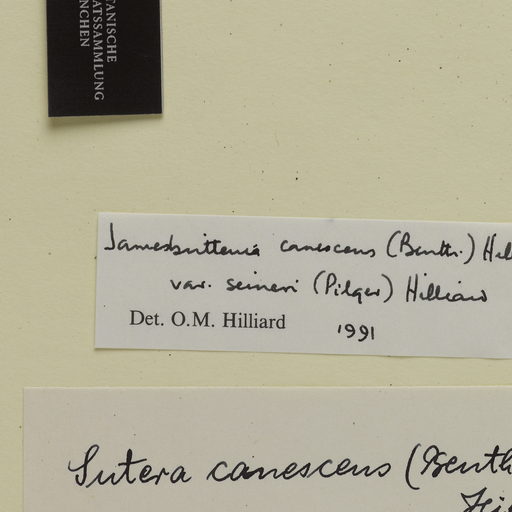 TANISCHE
ATSSAMMLUNG
NCHEN
Jamesbrittenia canescens (Benth.) Hil
var. seineri (Pilger) Hilliard
Det. O.M. Hilliard 1991
Sutera canescens (Benth
Hi